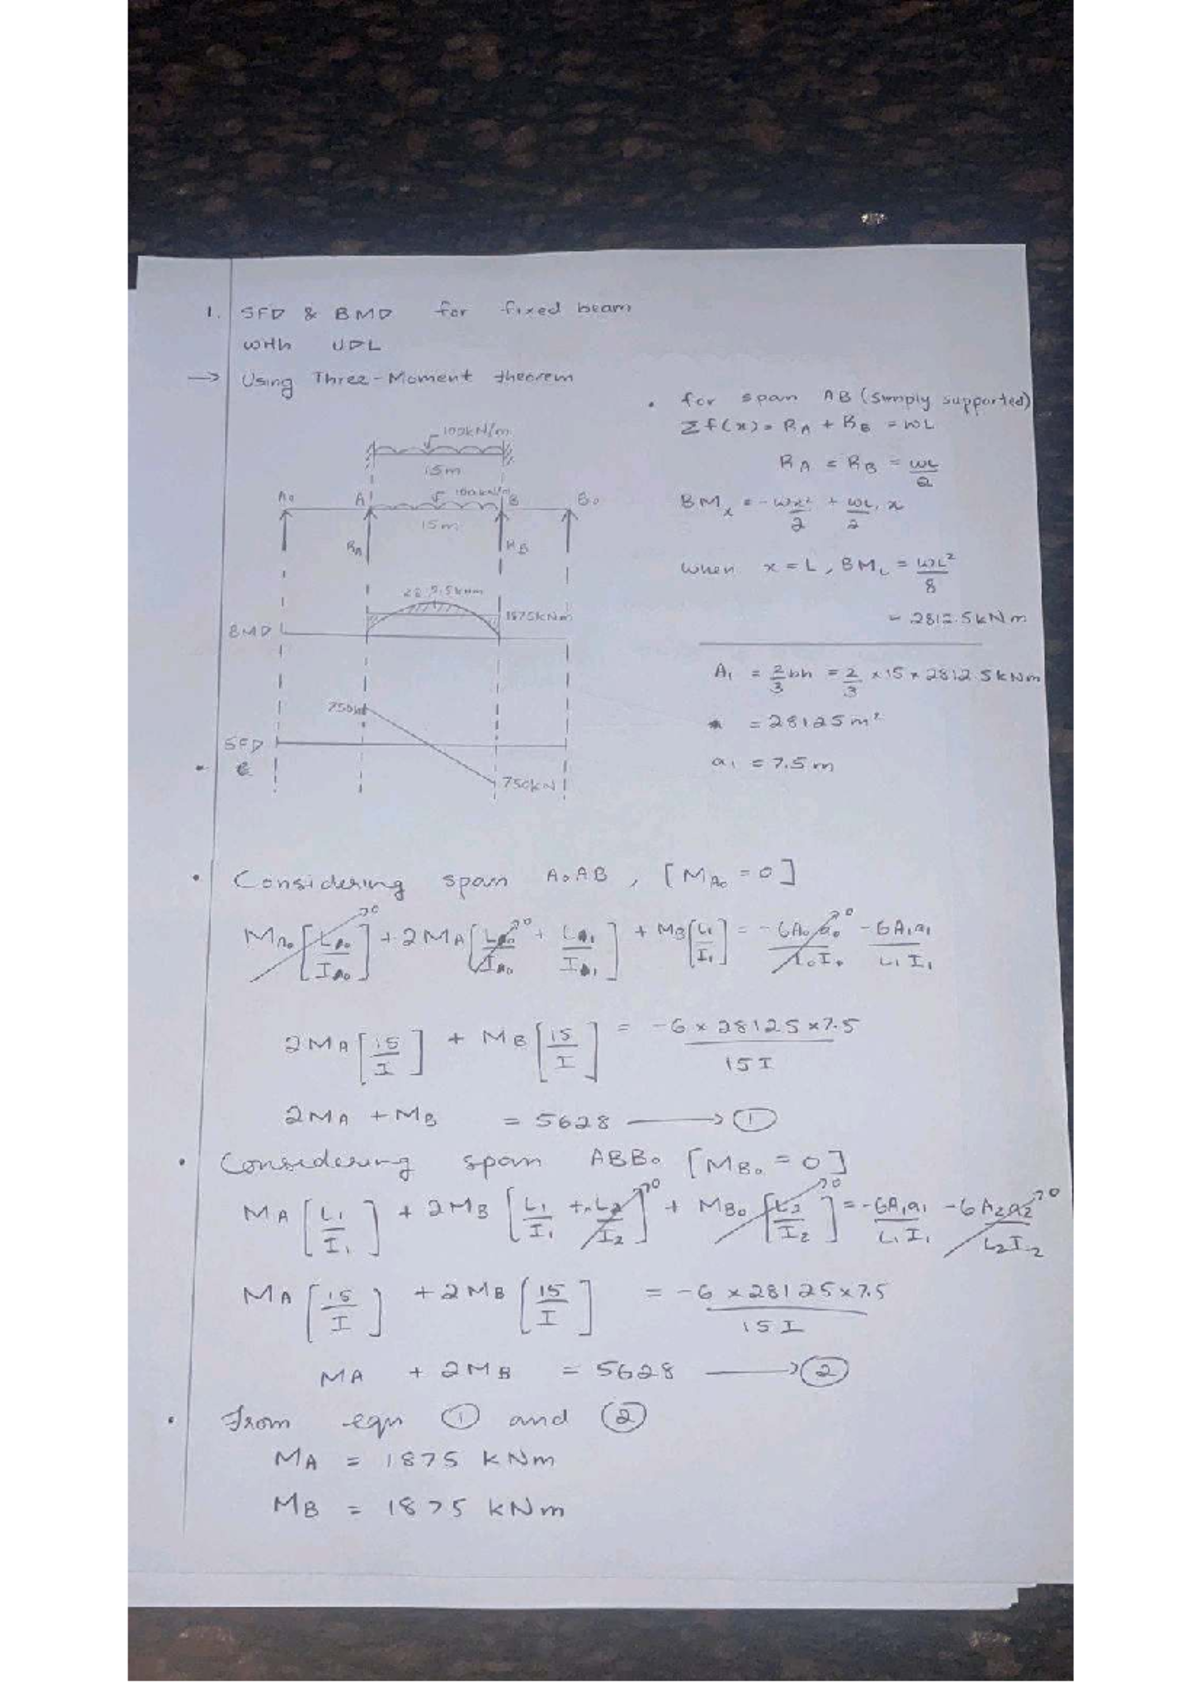 1. SFD & BMD for fixed beam
with UDL
→ Using Three-Moment theorem
100kN/m
15m
A₀ A 100kN/m B B₀
15m
R_A R_B
1875kNm
BMD
750kN
SFD
750kN
• for span AB (Simply supported)
Σf(x) = R_A + R_B = wL
R_A = R_B = wL/2
BM_x = -wx²/2 + wL/2 . x
when x = L, BM_L = wL²/8
= 2812.5kNm
A₁ = 2/3 bh = 2/3 × 15 × 2812.5kNm
= 28125m²
a₁ = 7.5m
• Considering span A₀AB, [M_A₀ = 0]
M_A₀[L_A₀/I_A₀]→0 + 2M_A[L_A₀/I_A₀→0 + L_A₁/I_A₁] + M_B[L₁/I₁] = -6A₀a₀/L₀I₀→0 - 6A₁a₁/L₁I₁
2M_A[15/I] + M_B[15/I] = -6×28125×7.5/15I
2M_A + M_B = 5628 → ①
• Considering span ABB₀ [M_B₀ = 0]
M_A[L₁/I₁] + 2M_B[L₁/I₁ + L₂/I₂→0] + M_B₀[L₂/I₂]→0 = -6A₁a₁/L₁I₁ - 6A₂a₂/L₂I₂→0
M_A[15/I] + 2M_B[15/I] = -6×28125×7.5/15I
M_A + 2M_B = 5628 → ②
• From eqn ① and ②
M_A = 1875 kNm
M_B = 1875 kNm